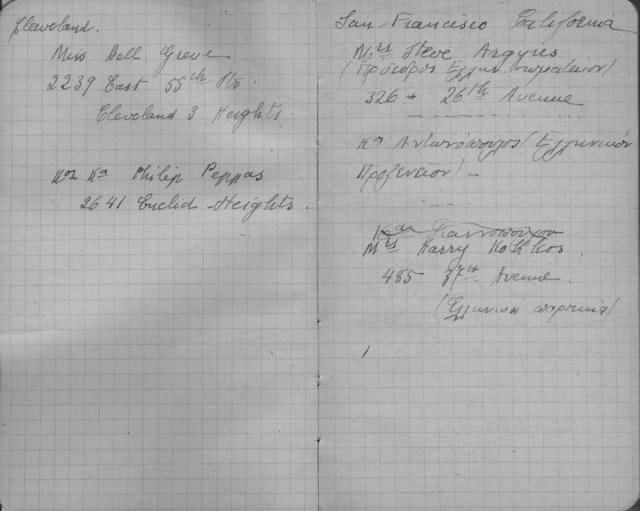 Cleveland.
Miss Bell Greve
2239 East 55th Str
Cleveland 3 Heights.
Κος Κα Philip Peppas
2641 Euclid-Heights.
San-Francisco California
Mrs Steve Argyris
(Πρόεδρος Ελλην. σωματείου)
326 - 26th Avenue
Κα Αντωνόπουλος (Ελληνικόν
Προξενείον) -
Mrs Harry Kokkos
485 37th Avenue
(Ελληνικά)